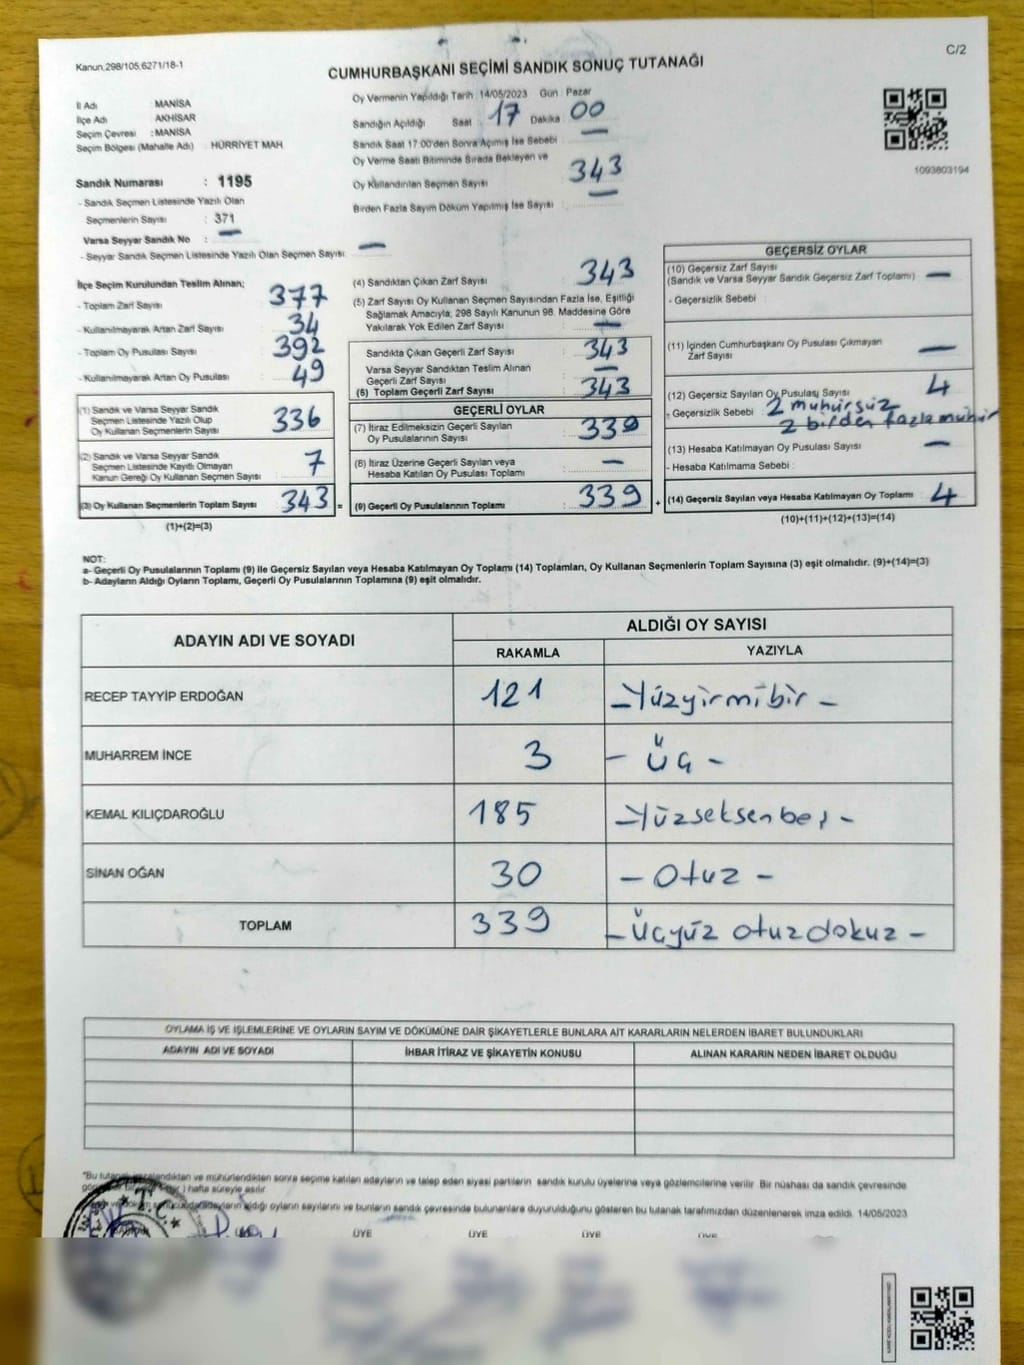 Kanun,298/105,6271/18-1
C/2
CUMHURBAŞKANI SEÇİMİ SANDIK SONUÇ TUTANAĞI
İl Adı : MANİSA
İlçe Adı : AKHİSAR
Seçim Çevresi : MANİSA
Seçim Bölgesi (Mahalle Adı) : HÜRRİYET MAH
Sandık Numarası : 1195
- Sandık Seçmen Listesinde Yazılı Olan
Seçmenlerin Sayısı : 371
Varsa Seyyar Sandık No : —
- Seyyar Sandık Seçmen Listesinde Yazılı Olan Seçmen Sayısı : —
Oy Vermenin Yapıldığı Tarih : 14/05/2023 Gün : Pazar
Sandığın Açıldığı Saat : 17 Dakika : 00
Sandık Saat 17:00'den Sonra Açımış İse Sebebi : —
Oy Verme Saati Bitiminde Sırada Bekleyen ve
Oy Kullandırılan Seçmen Sayısı : 343
Birden Fazla Sayım Döküm Yapılmış İse Sayısı : —
1093803194
İlçe Seçim Kurulundan Teslim Alınan;
- Toplam Zarf Sayısı : 377
- Kullanılmayarak Artan Zarf Sayısı : 34
- Toplam Oy Pusulası Sayısı : 392
- Kullanılmayarak Artan Oy Pusulası : 49
(1) Sandık ve Varsa Seyyar Sandık
Seçmen Listesinde Yazılı Olup
Oy Kullanan Seçmenlerin Sayısı : 336
(2) Sandık ve Varsa Seyyar Sandık
Seçmen Listesinde Kayıtlı Olmayan
Kanun Gereği Oy Kullanan Seçmen Sayısı : 7
(3) Oy Kullanan Seçmenlerin Toplam Sayısı : 343 =
(1)+(2)=(3)
(4) Sandıktan Çıkan Zarf Sayısı : 343
(5) Zarf Sayısı Oy Kullanan Seçmen Sayısından Fazla İse, Eşitliği
Sağlamak Amacıyla, 298 Sayılı Kanunun 98. Maddesine Göre
Yakılarak Yok Edilen Zarf Sayısı : —
Sandıkta Çıkan Geçerli Zarf Sayısı : 343
Varsa Seyyar Sandıktan Teslim Alınan
Geçerli Zarf Sayısı : —
(6) Toplam Geçerli Zarf Sayısı : 343
GEÇERLİ OYLAR
(7) İtiraz Edilmeksizin Geçerli Sayılan
Oy Pusulalarının Sayısı : 339
(8) İtiraz Üzerine Geçerli Sayılan veya
Hesaba Katılan Oy Pusulası Toplamı : —
(9) Geçerli Oy Pusulalarının Toplamı : 339 +
GEÇERSİZ OYLAR
(10) Geçersiz Zarf Sayısı
(Sandık ve Varsa Seyyar Sandık Geçersiz Zarf Toplamı) : —
- Geçersizlik Sebebi :
(11) İçinden Cumhurbaşkanı Oy Pusulası Çıkmayan
Zarf Sayısı : —
(12) Geçersiz Sayılan Oy Pusulası Sayısı : 4
- Geçersizlik Sebebi : 2 mühürsüz
2 birden fazla mühür
(13) Hesaba Katılmayan Oy Pusulası Sayısı : —
- Hesaba Katılmama Sebebi :
(14) Geçersiz Sayılan veya Hesaba Katılmayan Oy Toplamı : 4
(10)+(11)+(12)+(13)=(14)
NOT:
a- Geçerli Oy Pusulalarının Toplamı (9) ile Geçersiz Sayılan veya Hesaba Katılmayan Oy Toplamı (14) Toplamları, Oy Kullanan Seçmenlerin Toplam Sayısına (3) eşit olmalıdır. (9)+(14)=(3)
b- Adayların Aldığı Oyların Toplamı, Geçerli Oy Pusulalarının Toplamına (9) eşit olmalıdır.
ADAYIN ADI VE SOYADI ALDIĞI OY SAYISI
RAKAMLA YAZIYLA
RECEP TAYYİP ERDOĞAN 121 -Yüzyirmibir-
MUHARREM İNCE 3 -Üç-
KEMAL KILIÇDAROĞLU 185 -Yüzseksenbeş-
SİNAN OĞAN 30 -Otuz-
TOPLAM 339 -Üçyüz otuzdokuz-
OYLAMA İŞ VE İŞLEMLERİNE VE OYLARIN SAYIM VE DÖKÜMÜNE DAİR ŞİKAYETLERLE BUNLARA AİT KARARLARIN NELERDEN İBARET BULUNDUKLARI
ADAYIN ADI VE SOYADI İHBAR İTİRAZ VE ŞİKAYETİN KONUSU ALINAN KARARIN NEDEN İBARET OLDUĞU
*Bu tutanak imzalandıktan ve mühürlendikten sonra seçime katılan adayların ve talep eden siyasi partilerin sandık kurulu üyelerine veya gözlemcilerine verilir. Bir nüshası da sandık çevresinde
hafta süreyle asılır
adayların aldığı oyların sayılarını ve bunların sandık çevresinde bulunanlara duyurulduğunu gösteren bu tutanak tarafımızdan düzenlenerek imza edildi. 14/05/2023
T.C.
ÜYE ÜYE ÜYE ÜYE